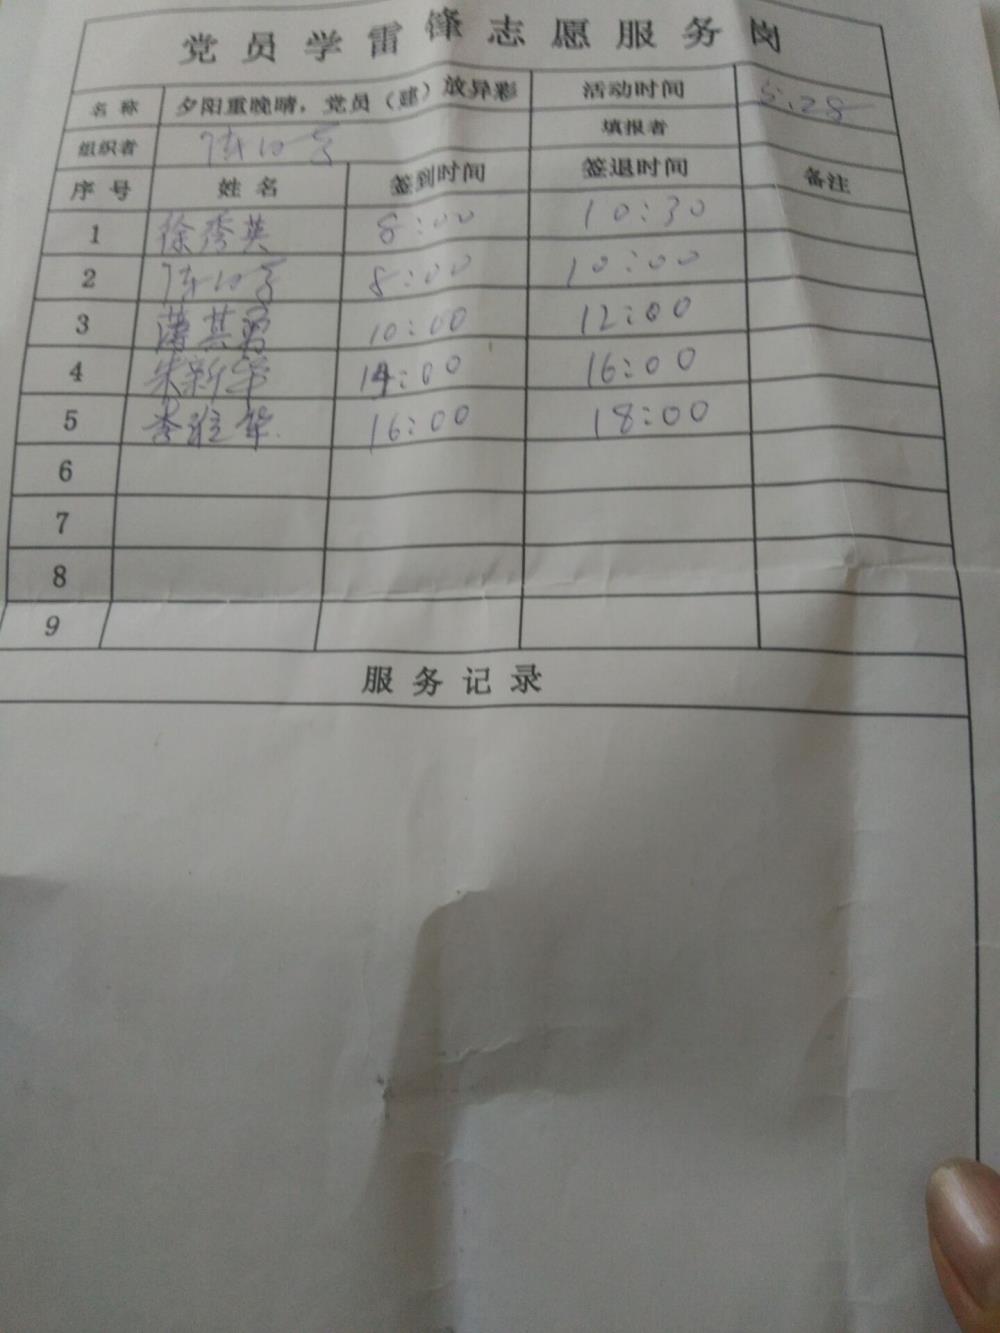 党员学雷锋志愿服务岗
名称 夕阳重晚晴，党员（建）放异彩 活动时间 5.28
组织者 填报者
序号 姓名 签到时间 签退时间 备注
1 徐秀英 8:00 10:30
2 8:00 10:00
3 10:00 12:00
4 朱新华 14:00 16:00
5 李雅华 16:00 18:00
6
7
8
9
服务记录